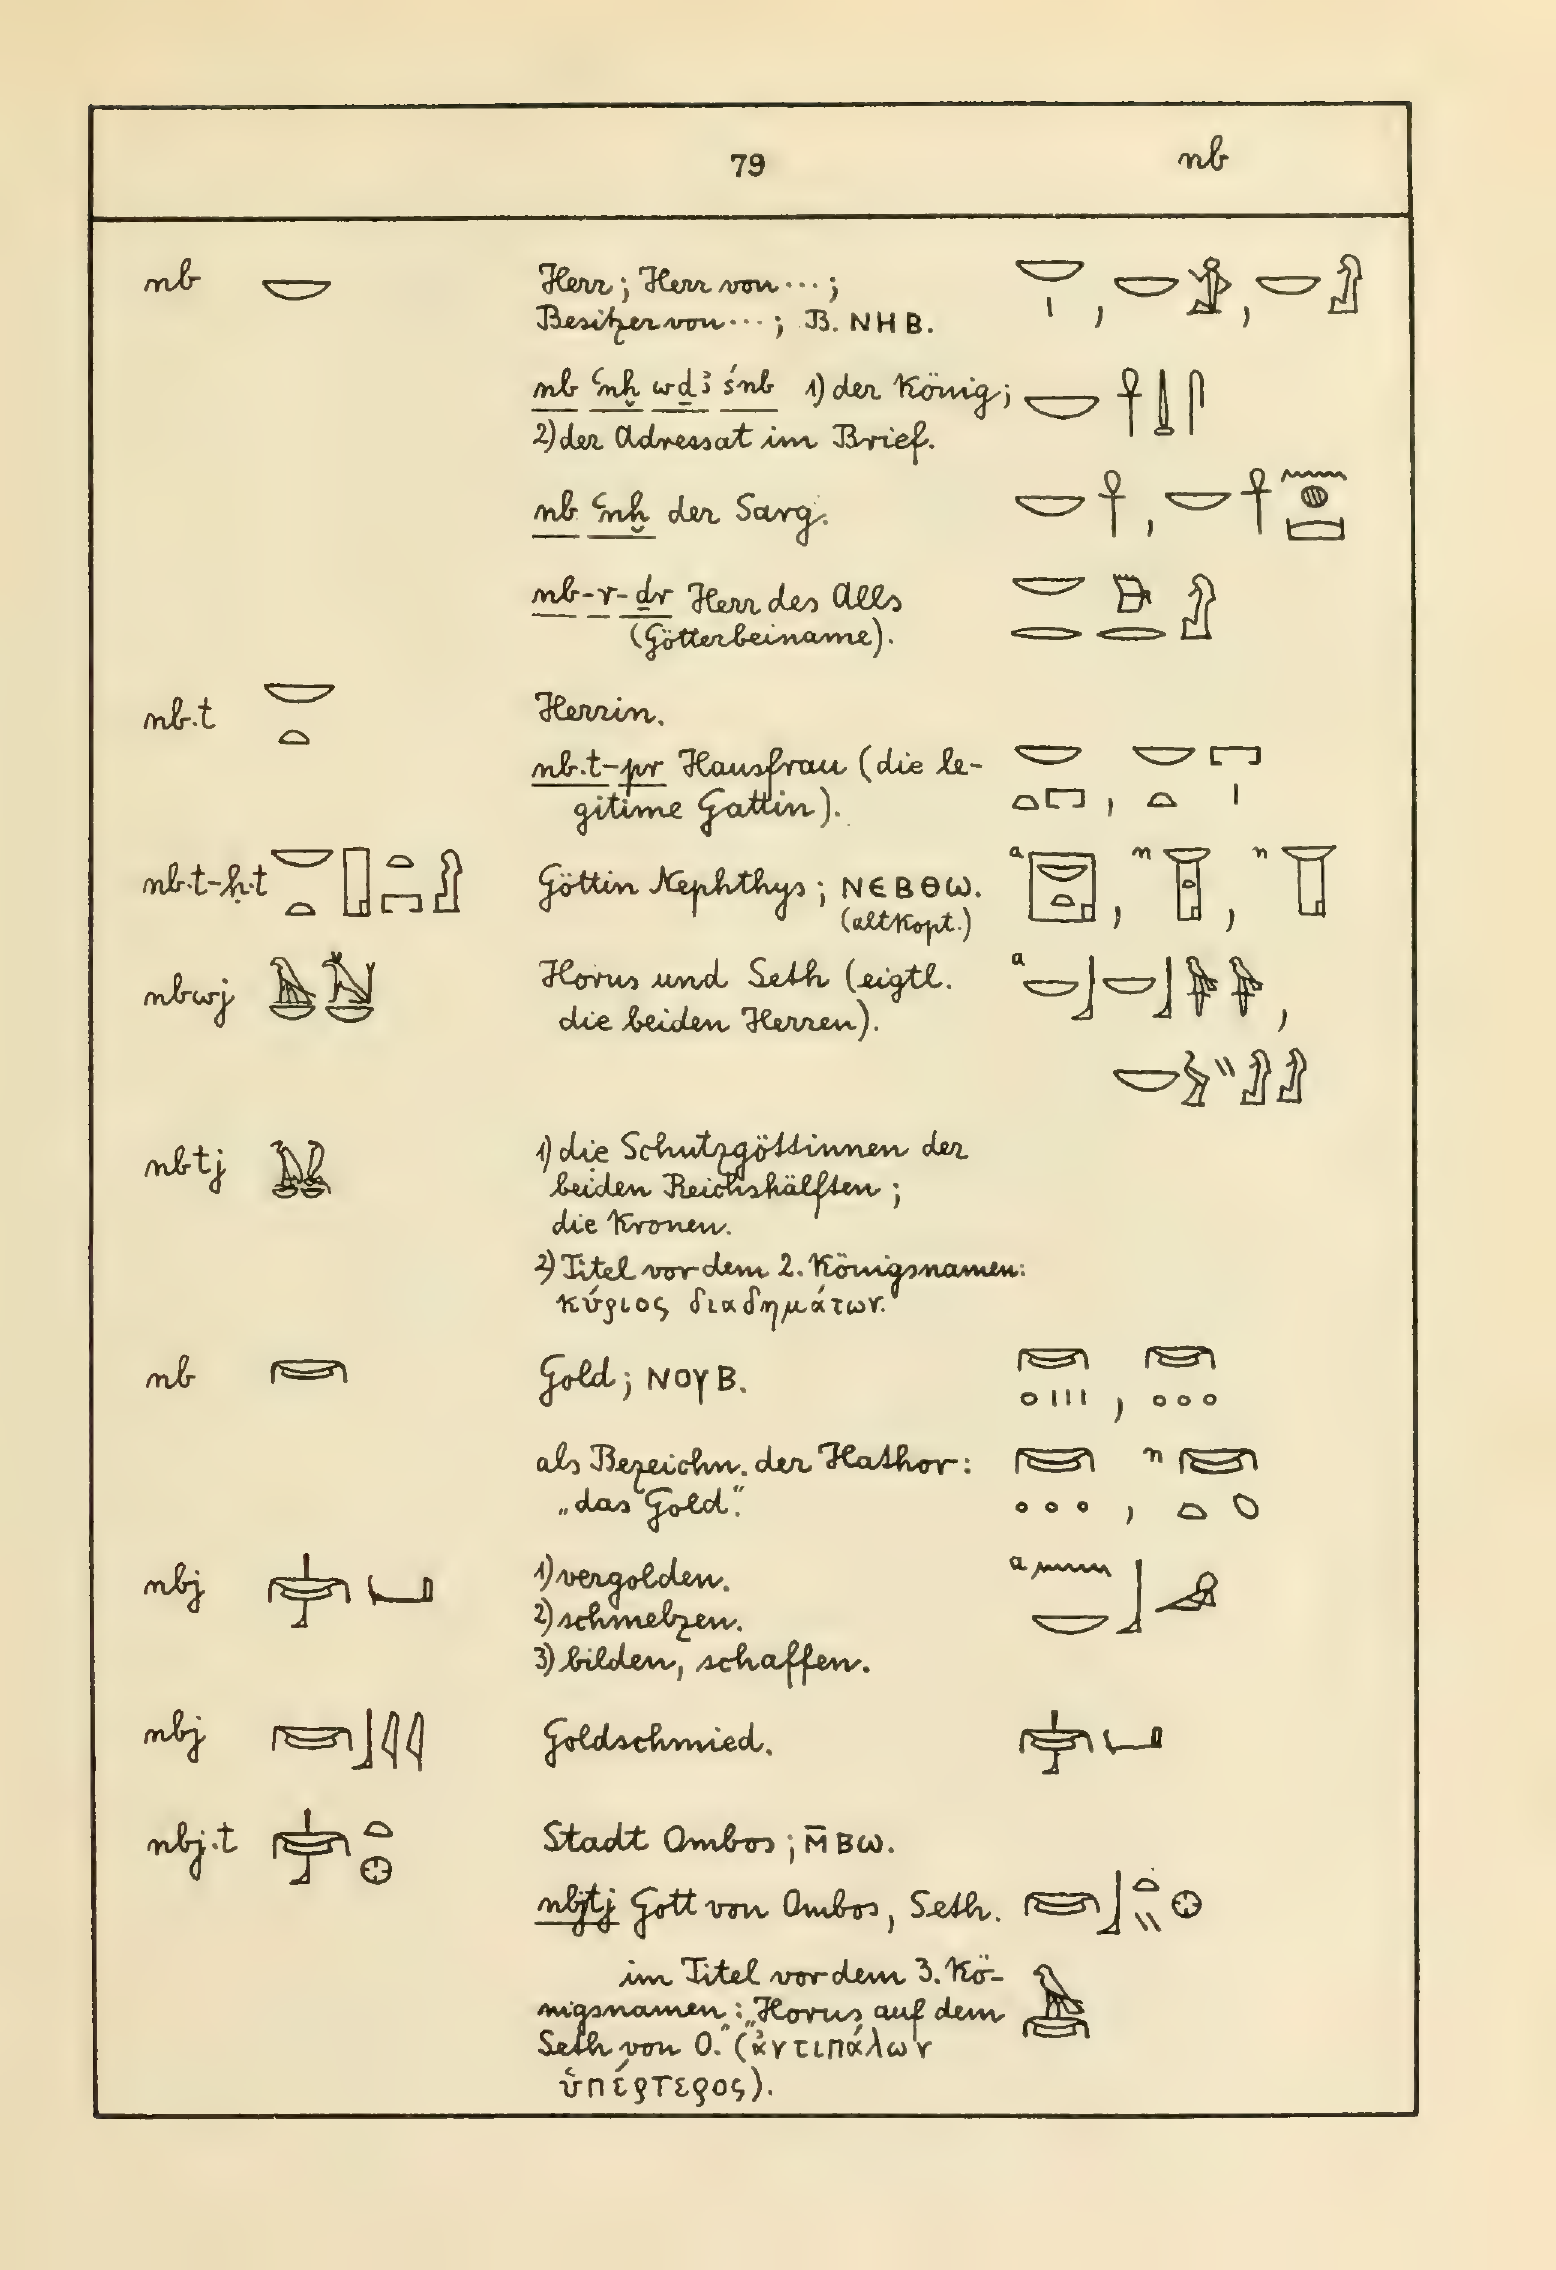 79 nb
nb 𓎟 Herr; Herr von ···; 𓎟𓏤, 𓎟𓀀, 𓎟𓀭
Besitzer von ···; B. ⲚⲎⲂ.
nb ꜥnḫ wḏꜣ śnb 1) der König; 𓎟𓋹𓍑𓋴
2) der Adressat im Brief.
nb ꜥnḫ der Sarg. 𓎟𓋹, 𓎟𓋹𓈖𓐍
nb-r-ḏr Herr des Alls 𓎟𓂋𓂋𓀭
(Götterbeiname).
nb.t 𓎟𓏏 Herrin.
nb.t-pr Hausfrau (die le- 𓎟𓏏𓉐, 𓎟𓏏𓉐𓏤
gitime Gattin).
nb.t-ḥ.t 𓎟𓏏𓉗𓏏𓉐𓀭 Göttin Nephthys; ⲚⲈⲂⲐⲰ. a 𓉠, n 𓉠, n
(altkopt.)
nbwj Horus und Seth (eigtl. a 𓎟𓃀𓎟𓃀𓅆𓅆,
die beiden Herren).
𓎟𓅱𓏭𓀭𓀭
nbtj 𓅒 1) die Schutzgöttinnen der
beiden Reichshälften;
die Kronen.
2) Titel vor dem 2. Königsnamen:
κύριος διαδημάτων.
nb 𓋞 Gold; ⲚⲞⲨⲂ. 𓋞𓈒𓏥, 𓋞𓈒𓈒𓈒
als Bezeichn. der Hathor: 𓋞𓈒𓈒𓈒, n 𓋞𓏏𓆇
„das Gold“.
nbj 𓋟𓂡 1) vergolden. a 𓈖𓎟𓃀
2) schmelzen.
3) bilden, schaffen.
nbj 𓋞𓃀𓇋𓇋 Goldschmied. 𓋟𓂡
nbj.t 𓋟𓏏𓊖 Stadt Ombos; Ⲙ̄ⲂⲰ.
nbjtj Gott von Ombos, Seth. 𓋞𓃀𓏏𓏭𓊖
im Titel vor dem 3. Kö- 𓅉
nigsnamen: „Horus auf dem
Seth von O.“ (ἀντιπάλων
ὑπέρτερος).